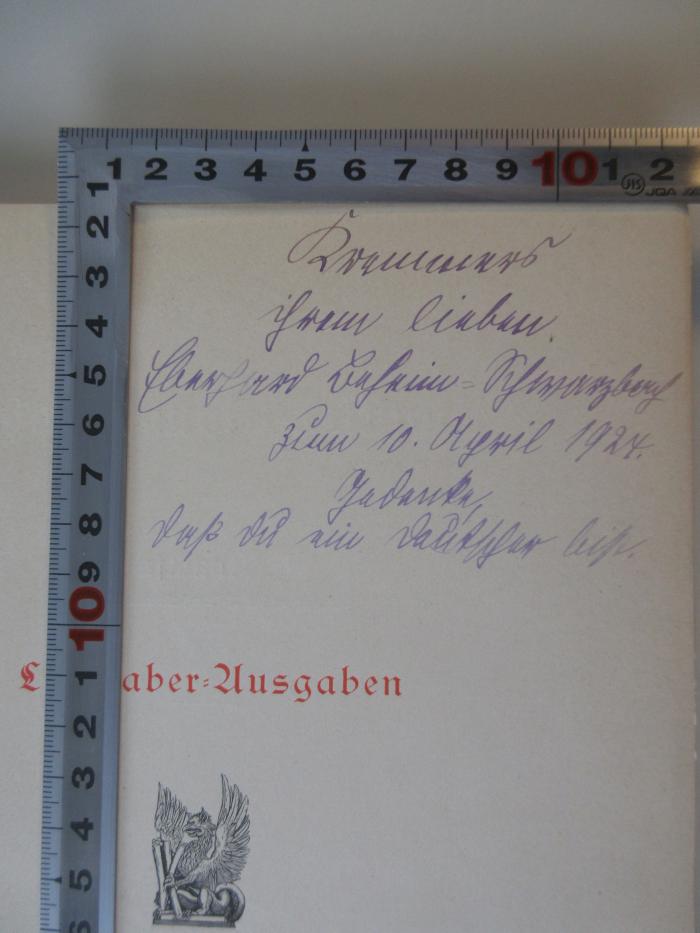 1 2 3 4 5 6 7 8 9 10 1 2
JIS JQA
1
2
3
4
5
6
7
8
9
10
1
2
3
4
5
6
Kremmers
ihrem lieben
Eberhard Beheim=Schwarzbach
zum 10. April 1924.
Gedenke,
daß du ein Deutscher bist.
L aber=Ausgaben